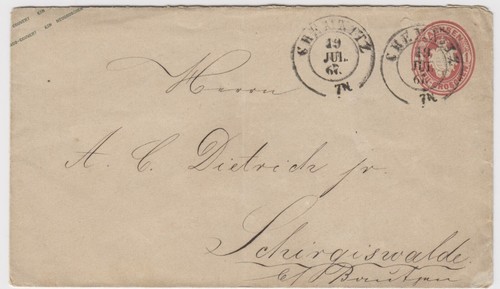 CHEMNITZ
19
JUL.
67.
7N.
CHEMNITZ
19
JUL.
67.
7N.
Herrn
A. C. Dietrich jr.
Schirgiswalde
b/ Bautzen